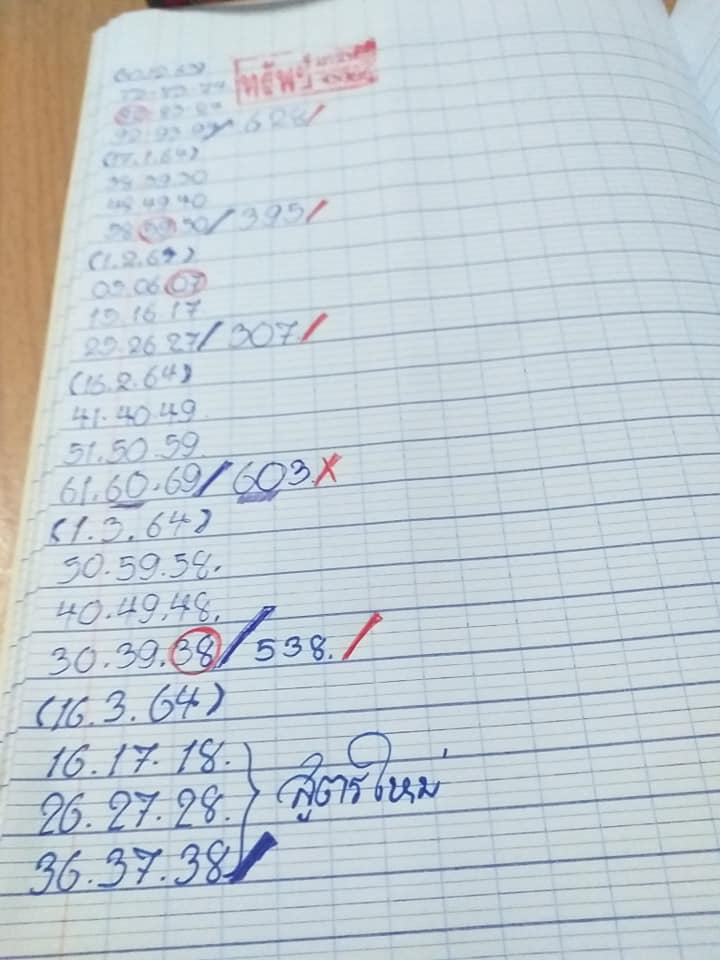 ทรัพย์
628/
(17.1.64)
38 39 30
48 49 40
58 59 50/ 395/
(1.2.64)
05.06 07
15.16 17
25.26 27/ 307./
(16.2.64)
41.40.49
51.50.59.
61.60.69/ 603.X
(1.3.64)
50.59.58.
40.49.48.
30.39.38/ 538./
(16.3.64)
16.17.18.
26.27.28. } สูตรใหม่
36.37.38/